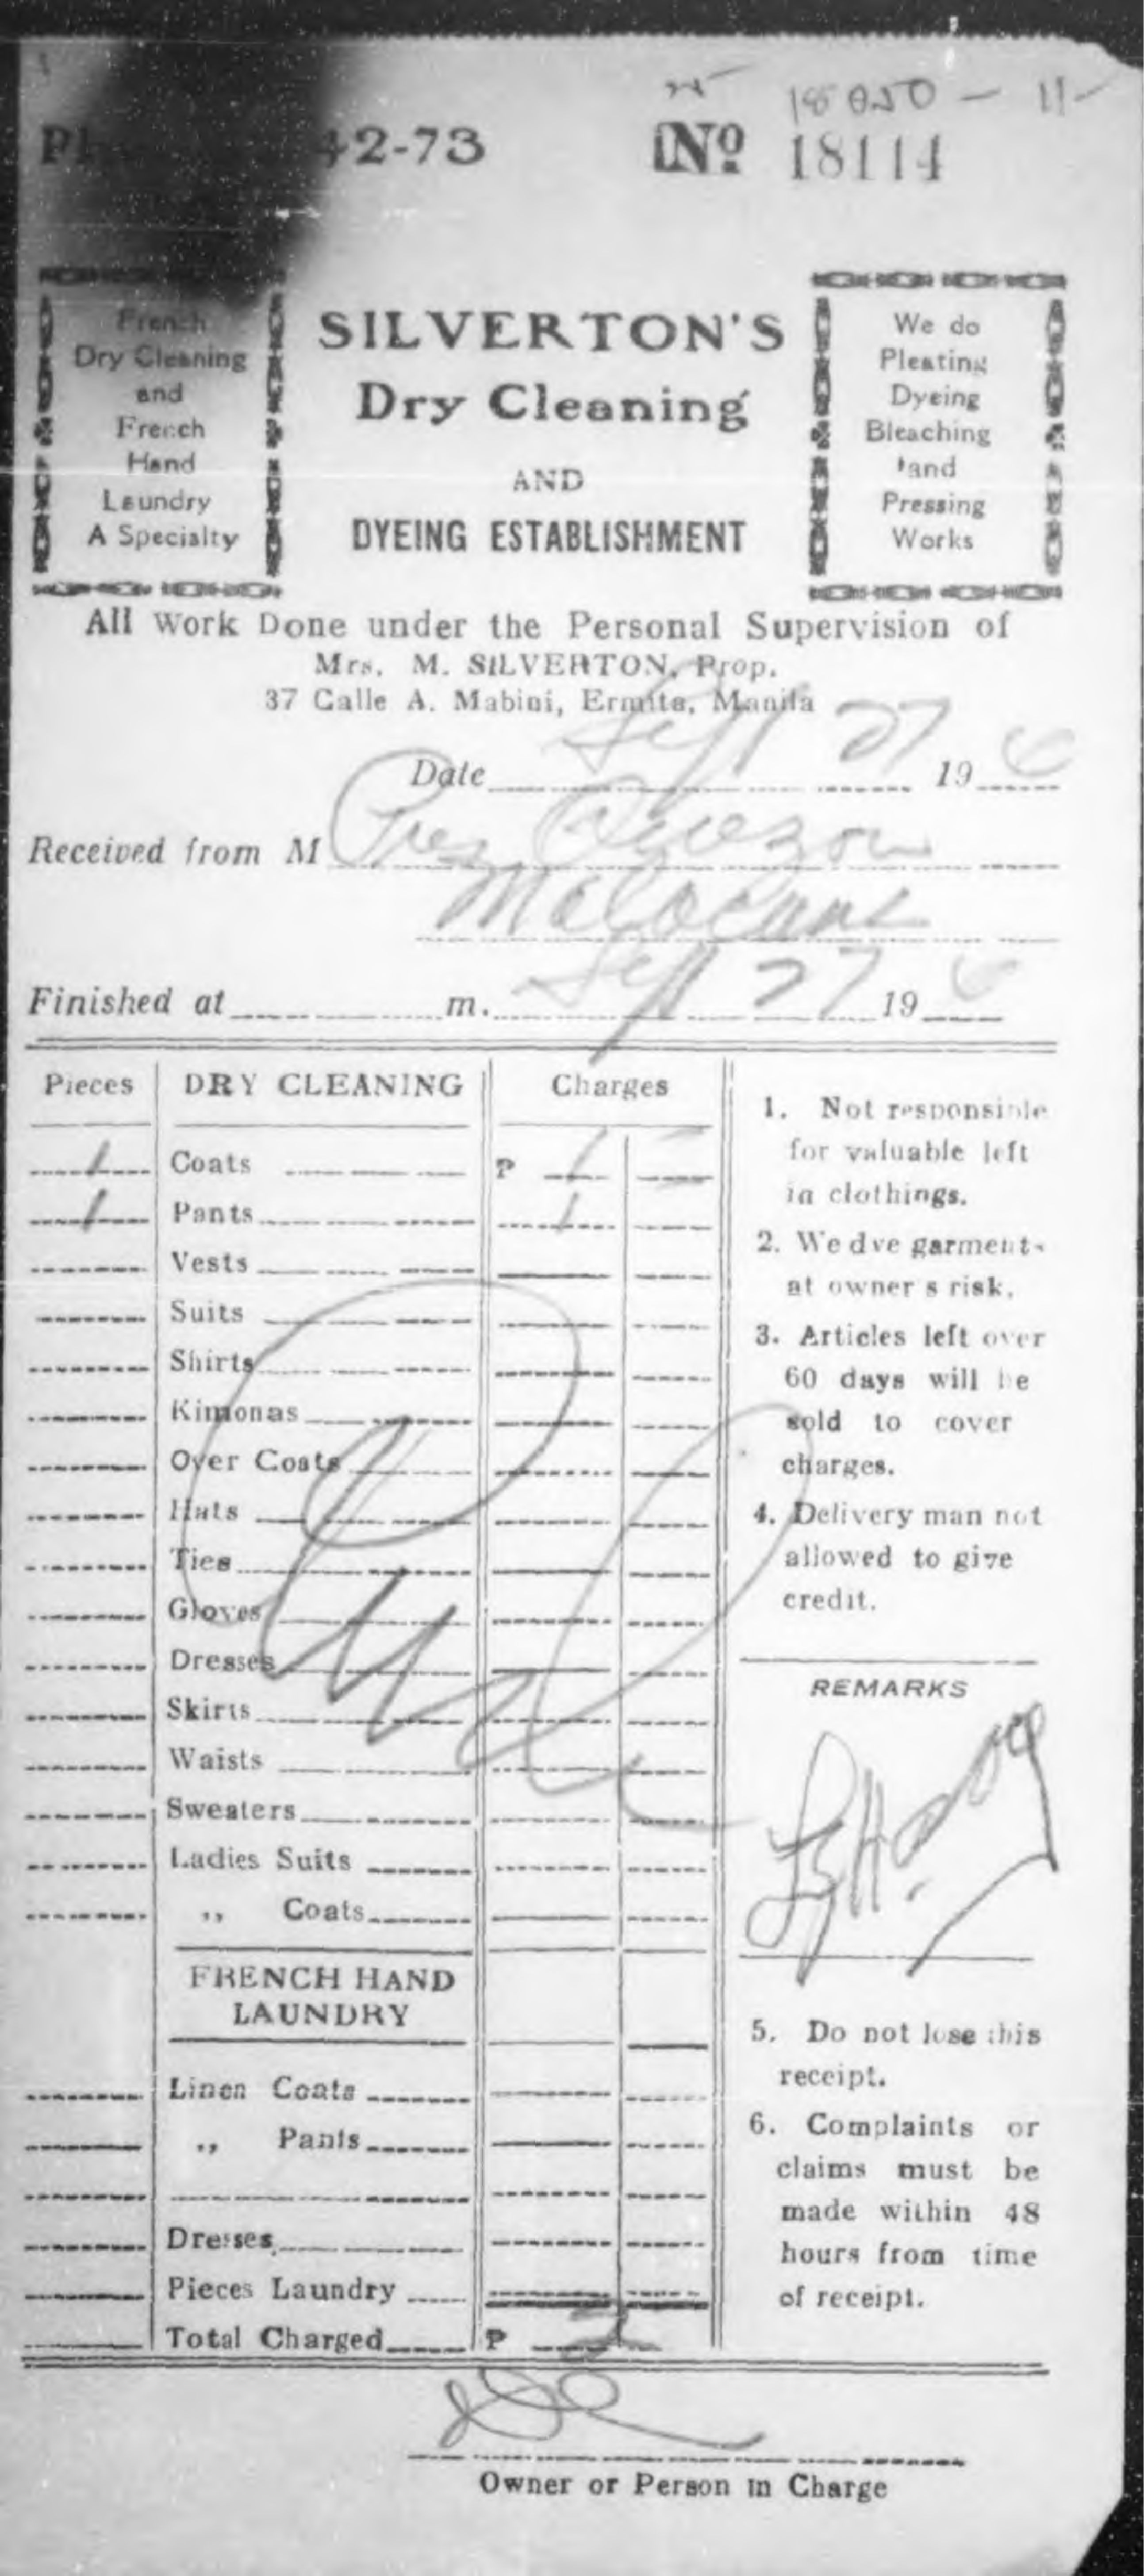 18050 - 11-
42-73 No 18114
French
Dry Cleaning
and
French
Hand
Laundry
A Specialty
SILVERTON'S
Dry Cleaning
AND
DYEING ESTABLISHMENT
We do
Pleating
Dyeing
Bleaching
and
Pressing
Works
All Work Done under the Personal Supervision of
Mrs. M. SILVERTON, Prop.
37 Calle A. Mabini, Ermita, Manila
Date Sept 27 19 6
Received from M Pres Quezon
Finished at m. Sept 27 19 6
Pieces DRY CLEANING Charges
1 Coats ₱ 1 -
1 Pants 1
Vests
Suits
Shirts
Kimonas
Over Coats
Hats
Ties
Gloves
Dresses
Skirts
Waists
Sweaters
Ladies Suits
,, Coats
FRENCH HAND
LAUNDRY
Linen Coats
,, Pants
Dresses
Pieces Laundry
Total Charged ₱ 2
1. Not responsible
for valuable left
in clothings.
2. We dye garments
at owner s risk.
3. Articles left over
60 days will be
sold to cover
charges.
4. Delivery man not
allowed to give
credit.
REMARKS
5. Do not lose this
receipt.
6. Complaints or
claims must be
made within 48
hours from time
of receipt.
Owner or Person in Charge